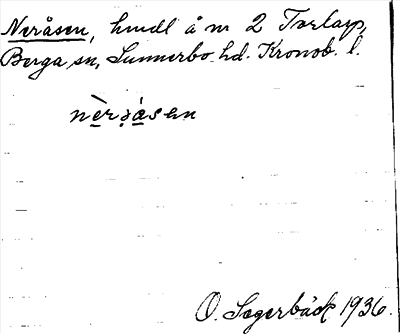 Neråsen, hmdl å nr 2 Torlarp,
Berga sn, Sunnerbo hd. Kronob. l.
nè̱rɔá̱sen
O. Segerbäck 1936.